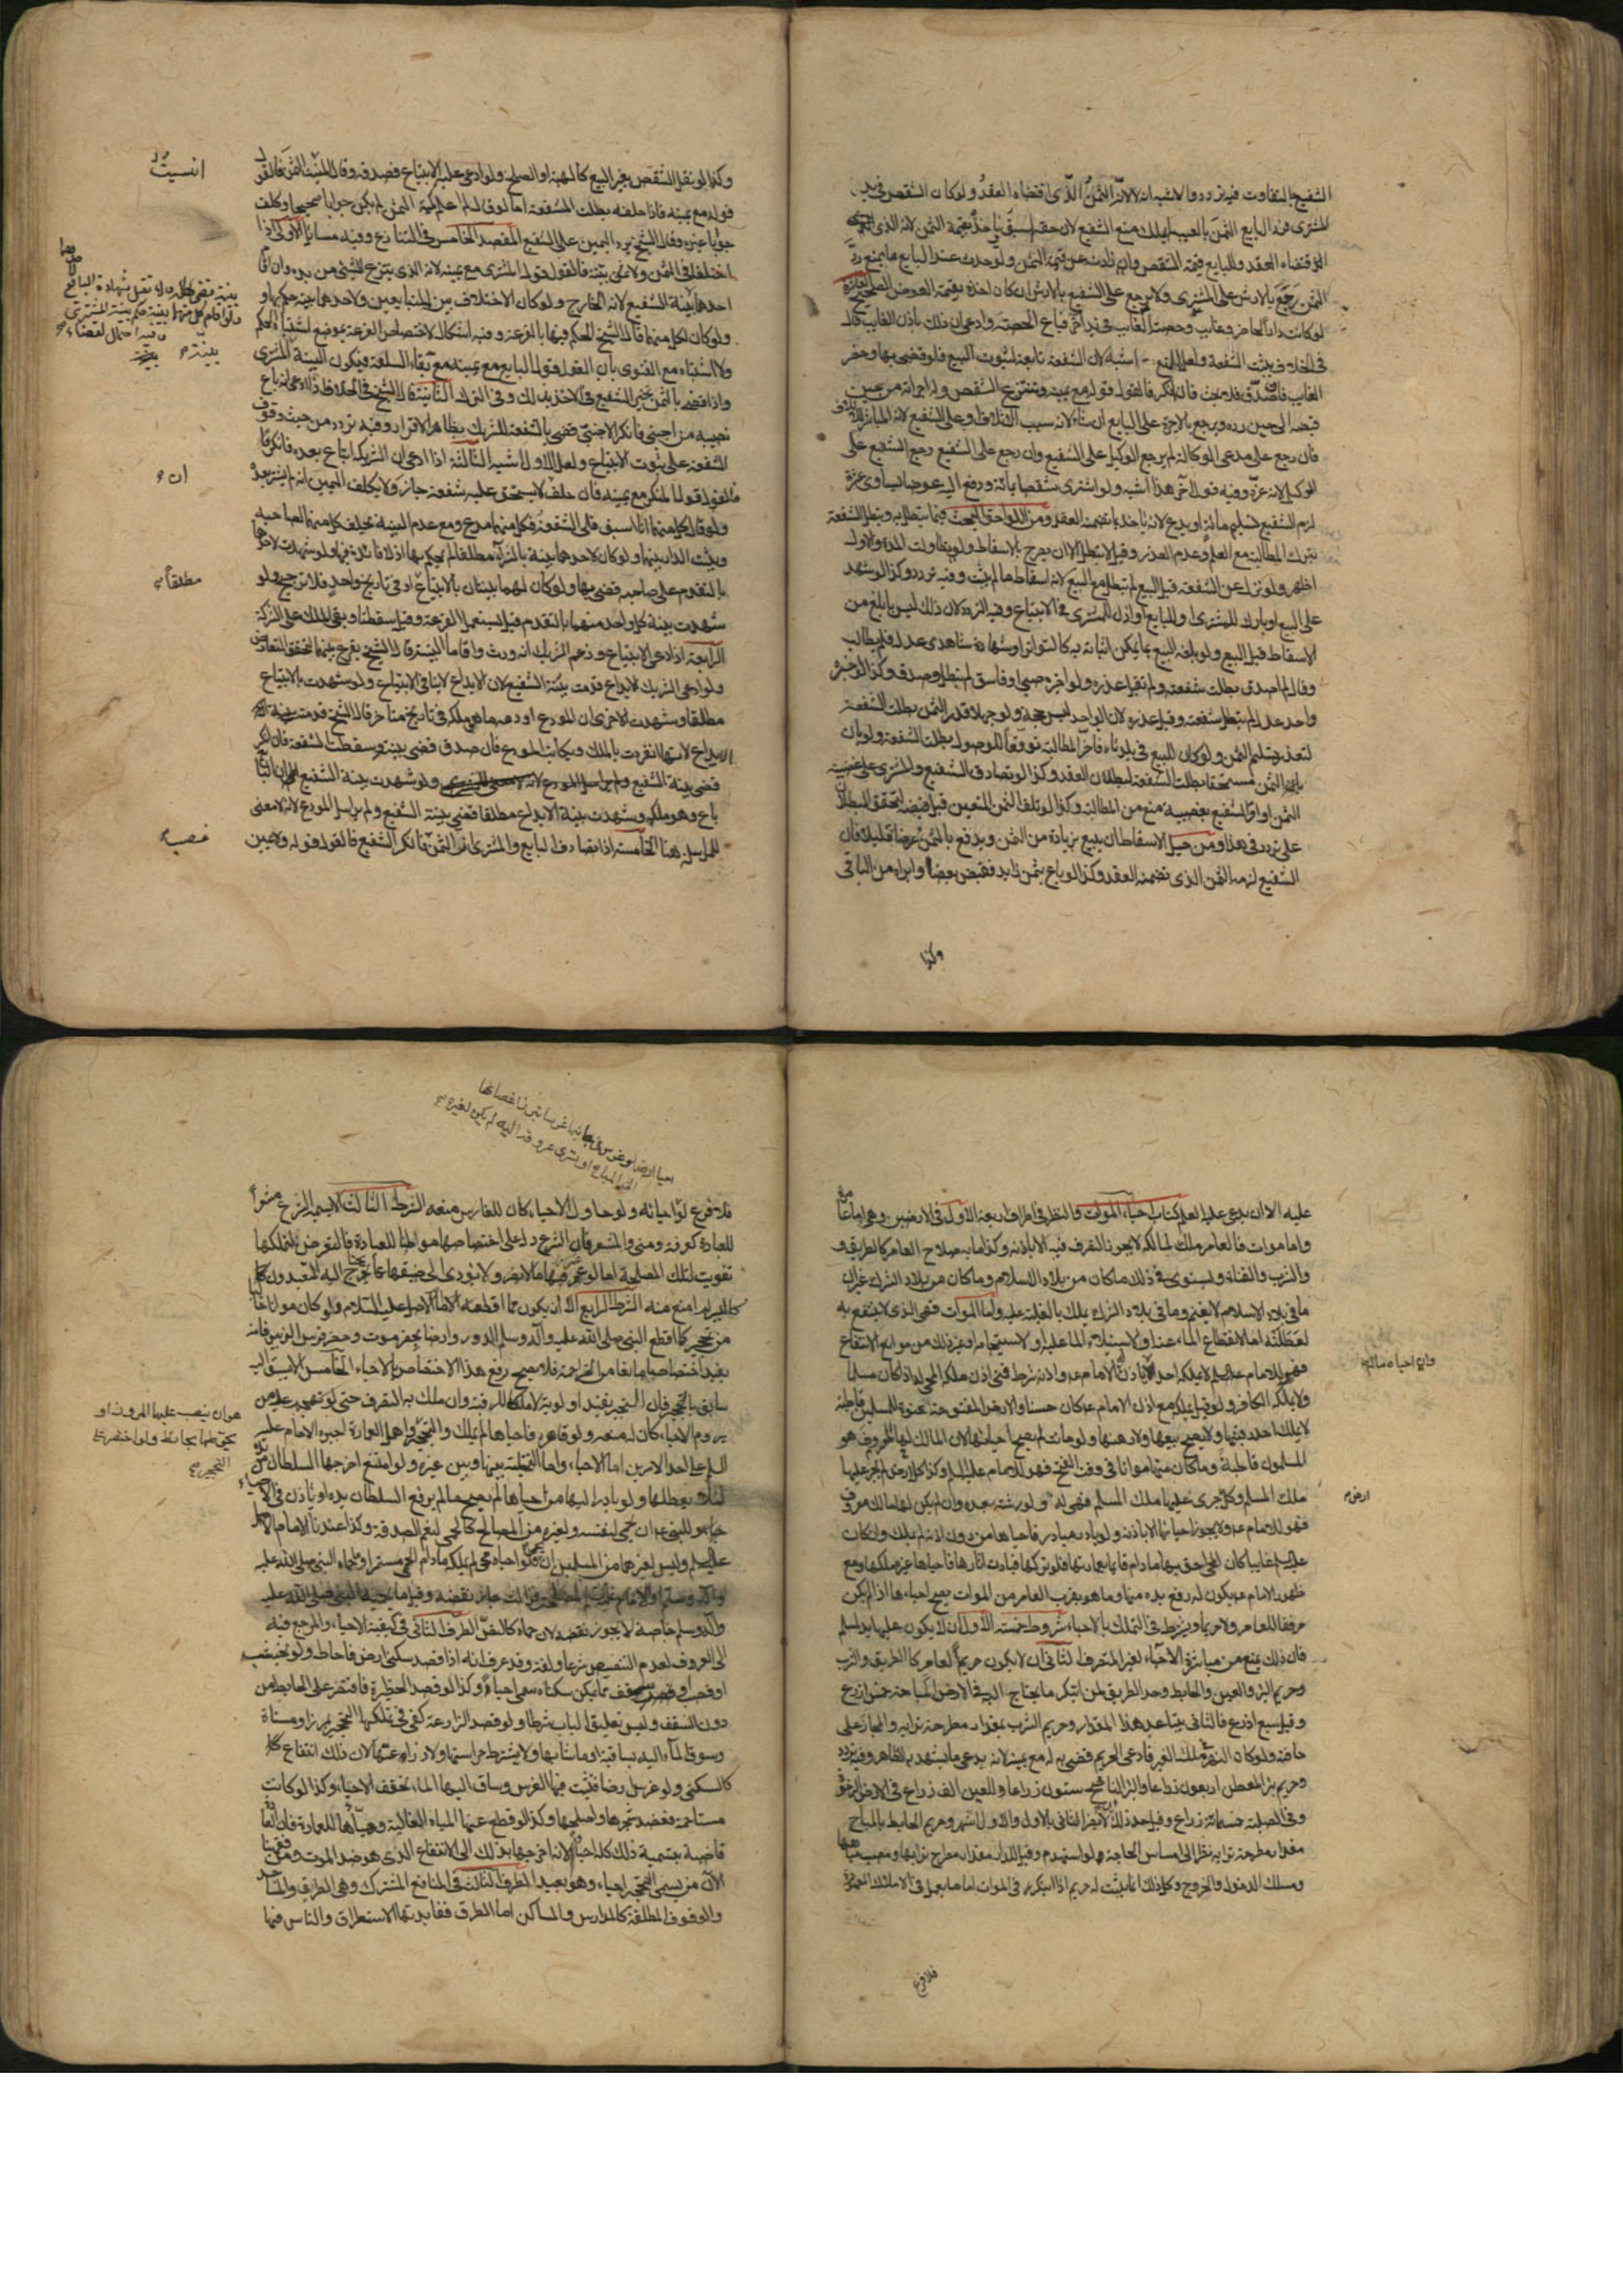 الشفيع بالتفاوت فيه تردد والاشبه انه لا لانه الثمن الذى اقتضاه العقد ولو كان الشقص فى يد
المشترى فرد البايع الثمن بالعيب لم يملك منع الشفيع لان حقه اسبق ياخذ بقيمة الثمن لانه الذى
اقتضاه العقد وللبايع قيمة الشقص وان زادت عن قيمة الثمن ولو حدث عند البايع ما يمنع رد
الثمن رجع بالارش على المشترى ولا يرجع على الشفيع بالارش ان كان اخذه بقيمة العوض الصحيح
لو كانت دار الحاضر وغايب وحصة الغايب فى يد آخر فباع الحصة وادعى ان ذلك باذن الغايب قال
فى الخلاف يثبت الشفعة ولعل المنع اشبه لان الشفعة تابعة لثبوت البيع فلو قضى بها وحضر
الغايب فان صدق فلا بحث فان انكر فالقول قوله مع يمينه وينتزع الشقص وله اجرته من حين
قبضه الى حين رده ويرجع بالاجرة على البايع ان شاء لانه سبب الاتلاف او على الشفيع لانه المباشر للاتلاف
فان رجع على مدعى الوكالة لم يرجع الوكيل على الشفيع وان رجع على الشفيع رجع الشفيع على
الوكيل لانه غره وفيه قول آخر هذا اشبه ولو اشترى شقصا بمائة ودفع اليه عوضا يساوى عشرة
لزم الشفيع تسليم مائة او يدع لانه ياخذ بما تضمنه العقد ومن اللواحق البحث فيما تبطل به وتبطل الشفعة
بترك المطالبة مع العلم وعدم العذر وقيل لا تبطل الا ان يصرح بالاسقاط ولو تطاولت المدة والاول
اظهر ولو نزل عن الشفعة قبل البيع لم تبطل مع البيع لانه اسقاط ما لم يثبت وفيه تردد وكذا لو شهد
على البيع او بارك للمشترى او للبايع او اذن للمشترى فى الابتياع وفيه التردد لان ذلك ليس بابلغ من
الاسقاط قبل البيع ولو بلغه البيع بما يمكن اثباته به كالتواتر او شهادة شاهدى عدل فلم يطالب
وقال لم اصدق بطلت شفعته ولم تقبل عذره ولو اخبره صبى او فاسق لم تبطل وصدق وكذا لو اخبره
واحد عدل لم تبطل شفعته وقبل عذره لان الواحد ليس حجة ولو جهلا قدر الثمن بطلت الشفعة
لتعذر تسليم الثمن ولو كان المبيع فى بلد ناء فاخر المطالبة توقعا للوصول بطلت الشفعة ولو بان
الثمن مستحقا بطلت الشفعة لبطلان العقد وكذا لو تصادق الشفيع والمشترى على غصبية
الثمن او اقر الشفيع بغصبيته منع من المطالبة وكذا لو تلف الثمن المتعين قبل قبضه لتحقق البطلان
على تردد فى هذا ومن حيل الاسقاط ان يبيع بزيادة من الثمن ويدفع بالثمن عرضا قليلا فان
الشفيع لزمه الثمن الذى تضمنه العقد وكذا لو باع بثمن زايد فقبض بعضا وابراه من الباقى
وكذا
وكذا لو نقل الشقص بغير البيع كالهبة او الصلح ولو ادعى عليه الابتياع فصدقه وقال انسيت الثمن فالقول
قوله مع يمينه فاذا حلفه بطلت الشفعة اما لو قال لم اعلم كمية الثمن لم يكن جوابا صحيحا وكلف
جوابا غيره وقال الشيخ يرد اليمين على الشفيع المقصد الخامس فى التنازع وفيه مسائل الاولى اذا
اختلفا فى الثمن ولا بينة فالقول قول المشترى مع يمينه لانه الذى ينتزع الشئ من يده وان اقام
احدهما بينة
ولو كان الاختلاف بين المتبايعين ولاحدهما بينة حكم بها و
ولو كان لكل منهما قال الشيخ الحكم فيها بالقرعة وفيه اشكال لاختصاص القرعة بموضع اشتباه الحكم
ولا اشتباه مع الفتوى بان القول قول البايع مع يمينه مع بقاء السلعة فيكون البينة بينة المشترى
واذا قضى بالثمن تخير الشفيع فى الاخذ بذلك وفى الترك الثانية قال الشيخ فى الخلاف اذا ادعى انه باع
نصيبه من اجنبى فانكر الاجنبى قضى بالشفعة للشريك بظاهر الاقرار وفيه تردد من حيث وقوف
الشفعة على ثبوت الابتياع ولعل الاول اشبه الثالثة اذا ادعى ان الشريك ابتاع بعده فانكر
فالقول قول المنكر مع يمينه فان حلف لا يستحق عليه شفعة جاز ولا يكلف اليمين انه لم يشتر بعده
ولو قال كل منهما انا اسبق فلى الشفعة فكل منهما مدع ومع عدم البينة يحلف كل منهما لصاحبه
وتثبت الدار بينهما ولو كان لاحدهما بينة بالشراء مطلقا لم يحكم بها اذ لا فائدة فيها ولو شهدت لاحدهما
بالتقدم على صاحبه قضى بها ولو كان لهما بينتان بالابتياع او فى تاريخ واحد فلا ترجيح ولو
شهدت بينة كل واحد منهما بالتقدم قيل يستعمل القرعة وقيل سقطتا وبقى الملك على الشركة
الرابعة اذا ادعى الابتياع وزعم الشريك انه ورث واقاما البينة قال الشيخ يقرع بينهما لتحقق التعارض
ولو ادعى الشريك الايداع قدمت بينة الشفيع لان الايداع لا ينافى الابتياع ولو شهدت بالابتياع
مطلقا وشهدت الاخرى ان المودع اودعه ما هو ملكه فى تاريخ متاخر قال الشيخ قدمت بينة
الايداع لانها انفردت بالملك ويكاتب المودع فان صدق قضى ببينته وسقطت الشفعة فان انكر
قضى ببينة الشفيع ولو شهدت بينة الشفيع ان البايع
باع وهو ملكه وشهدت بينة الايداع مطلقا قضى ببينة الشفيع ولم يراسل المودع لانه لا معنى
للمراسلة هنا الخامسة اذا تصادق البايع والمشترى ان الثمن فانكر الشفيع فالقول قوله
انسيت
ان
مطلقا
غصب
عليه الا ان يدعى عليه العلم كتاب احياء الموات والنظر فى اطراف اربعة الاول فى الارضين وهى اما عامرة
واما موات فالعامر ملك لمالكه لا يجوز التصرف فيه الا باذنه وكذا ما به صلاح العامر كالطريق و
والشرب والقناة ويستوى فى ذلك ما كان من بلاد الاسلام وما كان من بلاد الشرك غير ان
ما فى بلاد الاسلام لا يغنم وما فى بلاد الشرك يملك بالغلبة عليه واما الموات فهو الذى لا ينتفع به
لعطلته اما لانقطاع الماء عنه او لاستيلاء الماء عليه او لاستيجامه او غير ذلك من موانع الانتفاع
فهو للامام عليه السلام لا يملكه احد الا باذن الامام ع واذنه شرط فمتى اذن ملكه المحيى له اذا كان مسلما
ولا يملكه الكافر ولو قيل يملكه مع اذن الامام ع كان حسنا والارض المفتوحة عنوة للمسلمين قاطبة
لا يملك احد رقبتها ولا يصح بيعها ولا رهنها ولو ماتت لم يصح احياؤها لان المالك لها معروف وهو
المسلمون قاطبة وما كان منها مواتا فى وقت الفتح فهو للامام عليه السلم وكذا كل ارض لم يجر عليها
ملك المسلم وكل ارض جرى عليها ملك المسلم فهى له او لورثته بعده وان لم يكن لها مالك معروف
فهو للامام ع ولا يجوز احياؤها الا باذنه ولو بادر مبادر فاحياها من دون اذنه لم يملك وان كان
عليه السلم غايبا كان المحيى احق بها ما دام قايما بعمارتها فلو تركها فبادت اثارها فاحياها غيره ملكها ومع
ظهور الامام ع يكون له رفع يده منها وما هو بقرب العامر من الموات يصح احياؤها اذا لم يكن
مرفقا للعامر ولا حريما ويشترط فى التملك بالاحياء شروط خمسة الاول ان لا يكون عليها يد لمسلم
فان ذلك يمنع من مباشرة الاحياء لغير المتصرف الثانى ان لا يكون حريما لعامر كالطريق والشرب
وحريم البئر والعين والحايط وحد الطريق لمن ابتكر ما يحتاج اليه فى الارض المباحة خمس اذرع
وقيل سبع اذرع فالثانى يتباعد هذا المقدار وحريم الشرب بمقدار مطرح ترابه والمجاز على
حافتيه ولو كان النهر فى ملك الغير فادعى الحريم قضى به له مع يمينه لانه يدعى ما يشهد به الظاهر وفيه تردد
وحريم بئر المعطن اربعون ذراعا والبئر الناضح ستون ذراعا وللعين الف ذراع فى الارض الرخوة
وفى الصلبة خمسمائة ذراع وقيل حد ذلك ان لا يضر الثانى بالاول والاول اشهر وحريم الحايط بالمباح
مقدار مطرح ترابه نظرا الى مساس الحاجة لو استهدم وقيل للدار مقدار مطرح ترابها ومصب مياهها
ومسلك الدخول والخروج وكل ذلك انما يثبت له حريم اذا ابتكر فى الموات اما ما يعمل فى الاملاك المعمورة
فلا فرع
وان احياه مالم
ارض
فلا فرع لو احيا ارضا
ولو حاول الاحياء كان للغارس منعه الشرط الثالث ان لا يسميه الشرع مشعرا
للعبادة كعرفة ومنى والمشعر فان الشرع دل على اختصاصها موطنا للعبادة فالتعرض لتملكها
تفويت لتلك المصلحة اما لو عمر فيها ما لا يضر ولا يؤدى الى ضيقها عما يحتاج اليه المتعبدون
كاليسير لم امنع منه الشرط الرابع ان لا يكون مما اقطعه امام الاصل عليه السلام ولو كان مواتا خاليا
من تحجير كما اقطع النبى صلى الله عليه وآله وسلم الدور وارضا بحضرموت وحضر فرس الزبير فانه
يفيد اختصاصا مانعا من المزاحمة فلا يصح رفع هذا الاختصاص بالاحياء الخامس ان لا يسبق اليه
سابق بالتحجير فان التحجير يفيد اولوية لا ملكا للرقبة وان ملك به التصرف حتى لو تهجم عليه من
يروم الاحياء كان له منعه ولو قاهره فاحياها لم يملك والتحجير
ولو اهمل العمارة اجبره الامام عليه
السلم على احد الامرين اما الاحياء واما التخلية بينها وبين غيره ولو امتنع اخرجها السلطان من يده
لئلا يعطلها ولو بادر اليها من احياها لم يصح ما لم يرفع السلطان يده او ياذن فى الاحياء
وللنبى ع ان يحمى لنفسه ولغيره من المصالح كالحمى لنعم الصدقة وكذا عندنا لامام الاصل
عليه السلم وليس لغيرهما من المسلمين ان يحمى فلو احياه محى لم يملكه ما دام الحمى مستمرا وما حماه النبى صلى الله عليه
وآله وسلم او الامام عليه السلام لمصلحة فزالت جاز نقضه وقيل ما يحميه النبى صلى الله عليه
وآله وسلم خاصة لا يجوز نقضه لان حماه كالنص الطرف الثانى فى كيفية الاحياء والمرجع فيه
الى العرف لعدم التنصيص شرعا ولغة وقد عرف انه اذا قصد سكنى ارض فاحاط ولو بخشب
او قصب او سقف مما يمكن سكناه سمى احياء وكذا لو قصد الحظيرة فاقتصر على الحايط من
دون السقف وليس تعليق الباب شرطا ولو قصد الزراعة كفى فى تملكها التحجير بمرز او مسناة
وسوق الماء اليه بساقية او ما شابهها ولا يشترط حراستها ولا زراعتها لان ذلك انتفاع
كالسكنى ولو غرس ارضا فنبت فيها الغرس وساق اليها الماء تحقق الاحياء وكذا لو كانت
مستاجمة فعضد شجرها واصلحها وكذا لو قطع عنها المياه الغالبة وهيأها للعمارة فان العادة
قاضية بتسمية ذلك كله احياء لانه اخرجها بذلك الى الانتفاع الذى هو ضد الموت ومن فقهائنا
الآن من يسمى التحجير احياء وهو بعيد الطرف الثالث فى المنافع المشتركة وهى الطرق والمساجد
والوقوف المطلقة كالمدارس والمساكن اما الطرق ففايدتها الاستطراق والناس فيها
هو ان ينصب عليها المروز او
يحوطها بحائط
التحجير